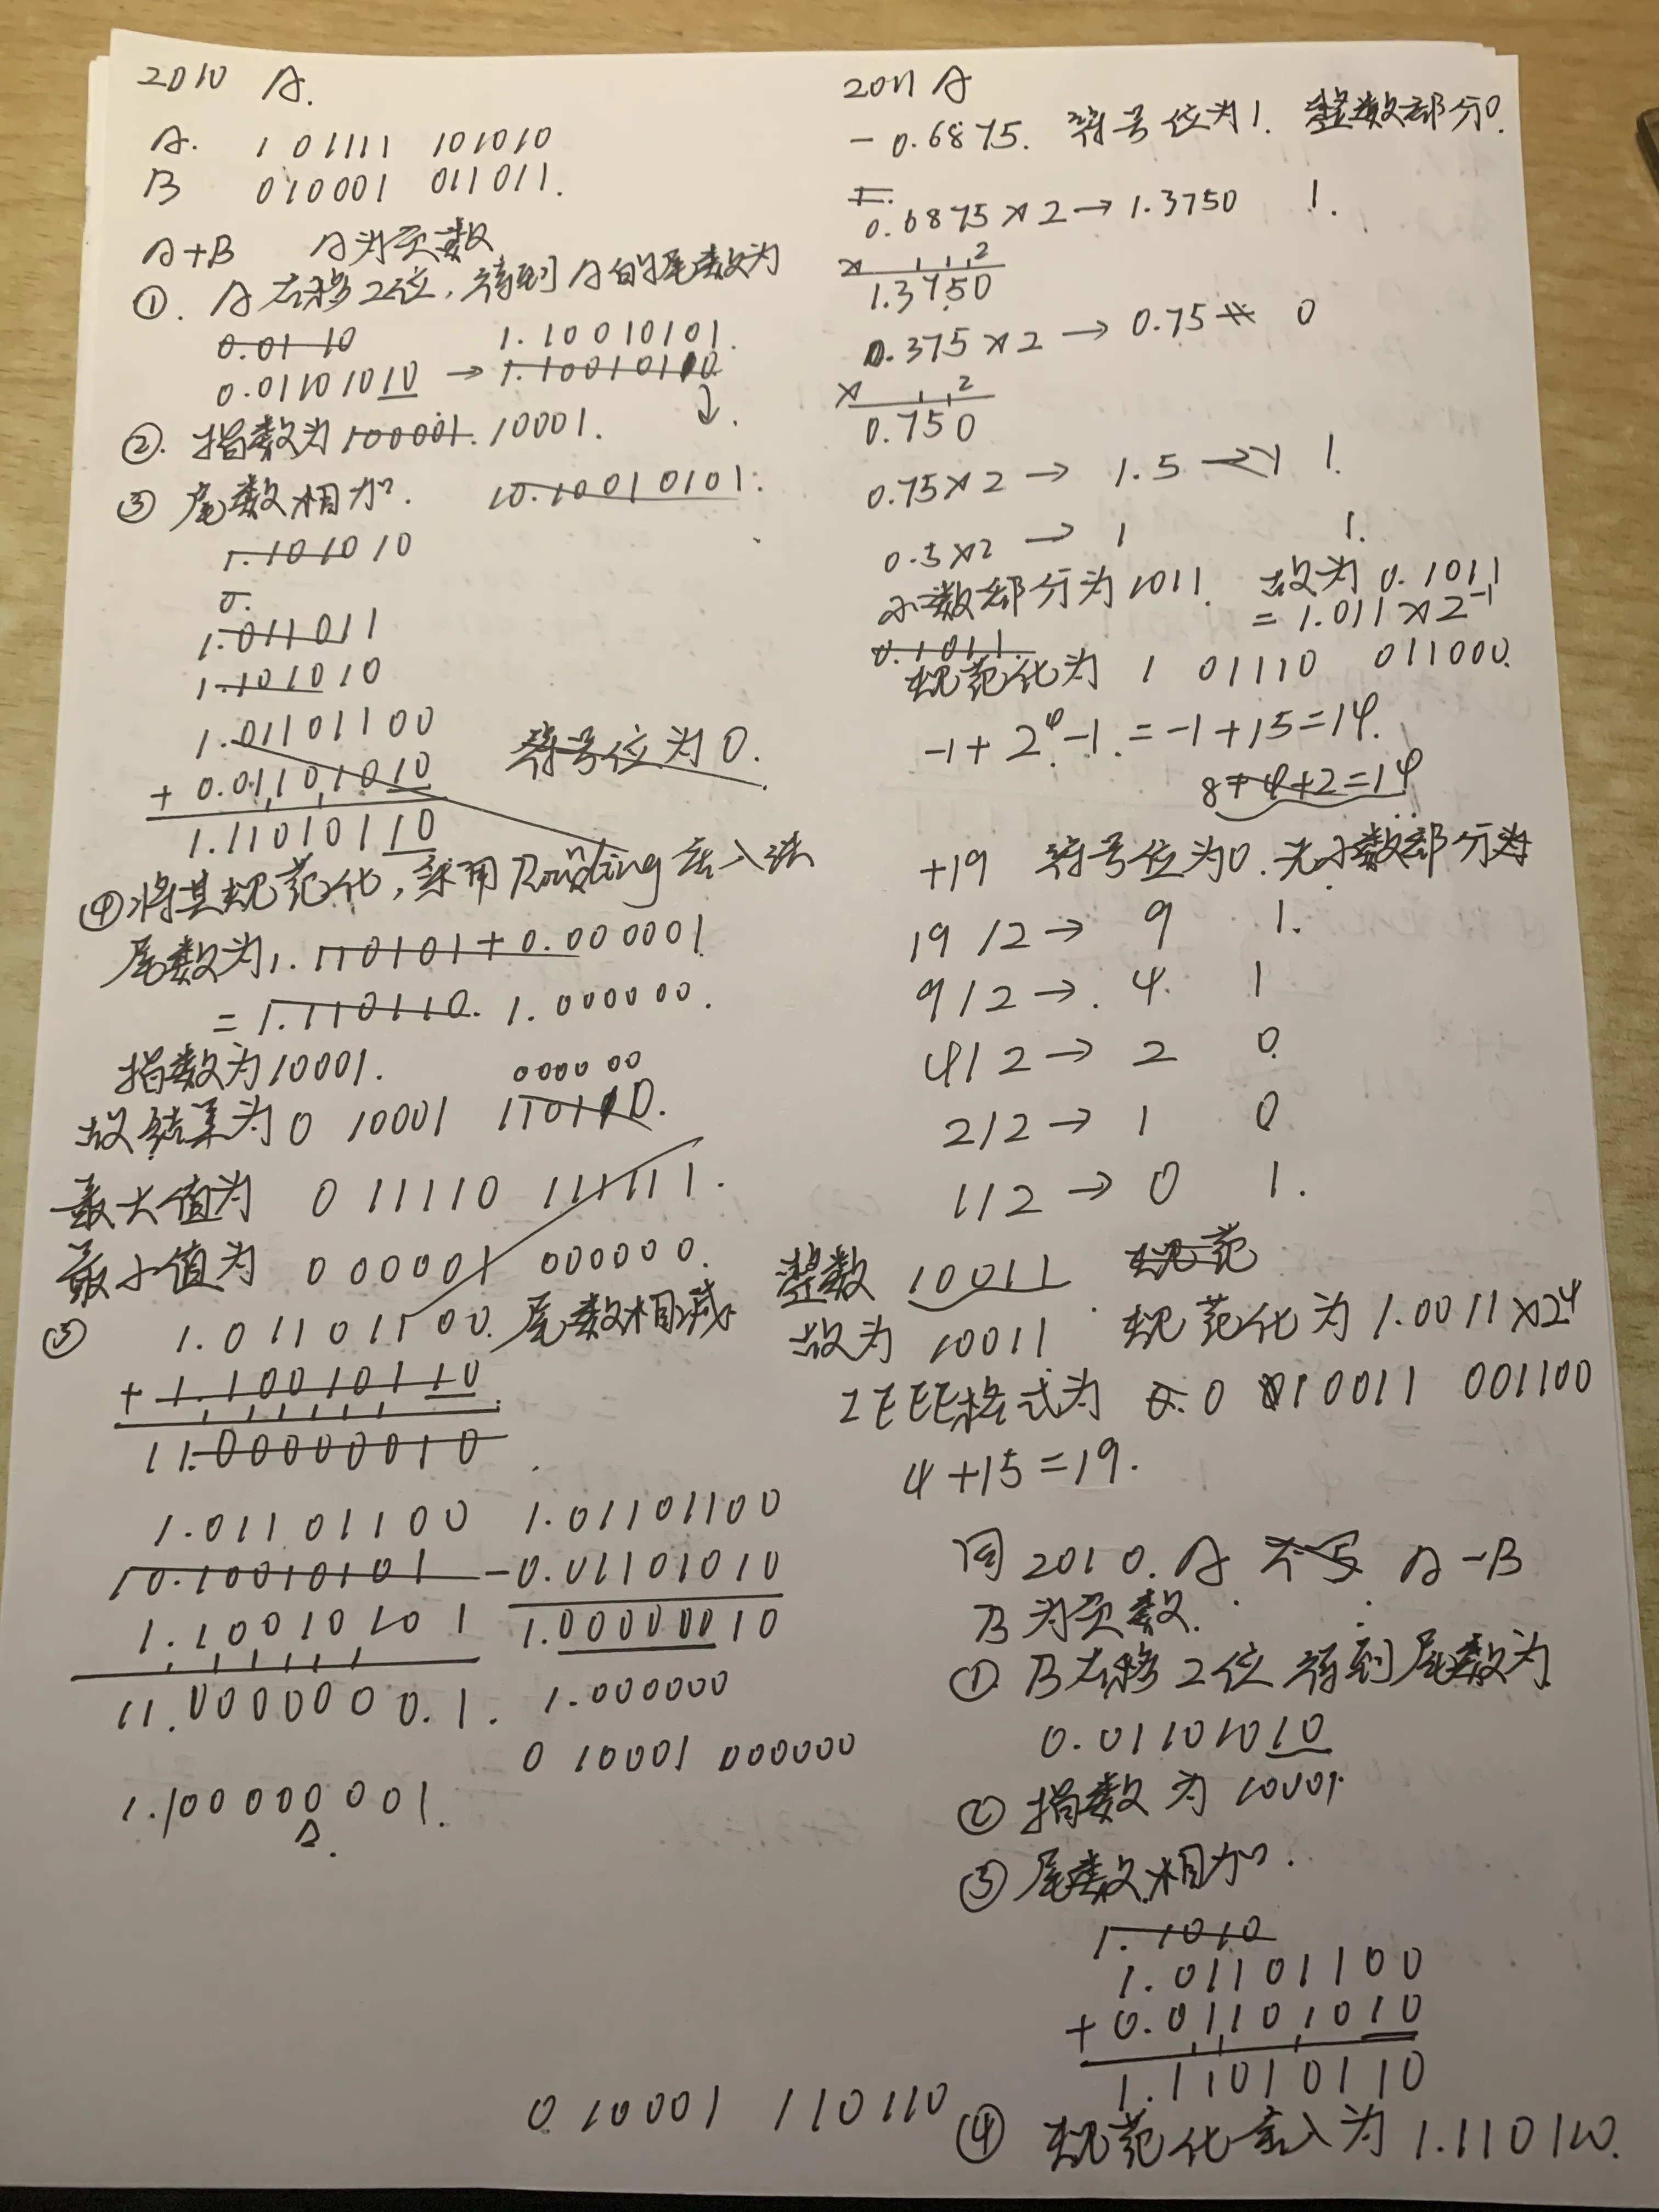 2010 A.
A. 1 01111 101010
B 0 10001 011011.
A+B A为负数
①. A右移2位,得到A的尾数为
0.01 10 1.10010101.
0.01101010 → 1.10010110
②. 指数为100001. 10001.
③ 尾数相加. 10.10010101.
1.101010
0.
1.011011
1.101010
1.01101100
+ 0.01101010 符号位为0.
1.11010110
④将其规范化,采用Rounding舍入法
尾数为1.110101+0.000001
=1.110110. 1.000000.
指数为10001. 000000
故结果为0 10001 110110.
最大值为 0 11110 111111.
最小值为 0 00001 000000.
③ 1.01101100. 尾数相减
+ 1.10010110
11.00000010
1.01101100 1.01101100
10.10010101 -0.01101010
1.10010101 1.00000010
11.00000001. 1.000000
0 10001 000000
1.100000001.
0 10001 110110
2011 A
-0.6875. 符号位为1. 整数部分0.
0.6875×2→1.3750 1.
× 2
1.3750
0.375×2→0.75 0
× 2
0.750
0.75×2→ 1.5 → 1.
0.5×2 → 1 1.
小数部分为1011. 故为0.1011
0.1011. =1.011×2⁻¹
规范化为 1 01110 011000.
-1+2⁴-1.=-1+15=14.
8+4+2=14
+19 符号位为0.无小数部分
19/2→ 9 1.
9/2→. 4. 1
4/2→ 2 0
2/2→ 1 0
1/2→ 0 1.
整数 10011 规范
故为 10011 规范化为1.0011×2⁴
IEEE格式为 0 10011 001100
4+15=19.
同2010.A 不写 A-B
B为负数.
① B右移2位得到尾数为
0.01101010
② 指数为10001.
③ 尾数相加.
1.1010
1.01101100
+0.01101010
1.11010110
④ 规范化舍入为1.110110.